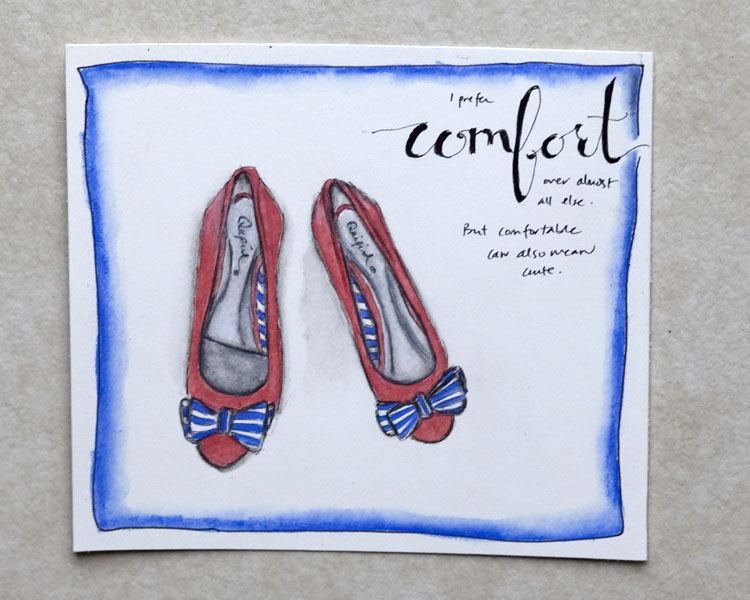 I prefer
comfort
over almost
all else.
But comfortable
can also mean
cute.
Qupid
Qupid